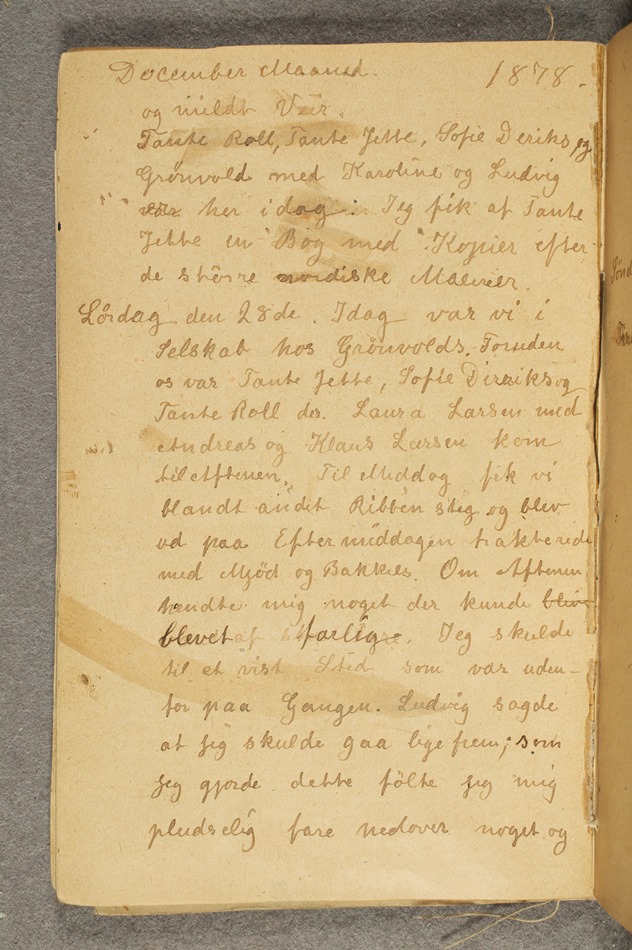 December Maaned. 1878.
og mildt Veir.
Tante Roll, Tante Jette, Sofie Deriks, og
Grönvold med Karoline og Ludvig
var her idag. Jeg fik af Tante
Jette en Bog med Kopier efter
de större nordiske Malerier.
Lördag den 28de. Idag var vi i
Selskab hos Grönvolds. Foruden
os var Tante Jette, Sofie Dirriks og
Tante Roll der. Laura Larsen med
Andreas og Klaus Larsen kom
til Aftenen. Til Middag fik vi
blandt andet Ribben steg og blev
ud paa Eftermiddagen trakterede
med Mjöd og Bakkels. Om Aftenen
hendte mig noget der kunde blive
blevet af farlig. Jeg skulde
til et vist Sted som var uden-
for paa Gangen. Ludvig sagde
at jeg skulde gaa lige frem; som
jeg gjorde dette fölte jeg mig
pludselig fare nedover noget og